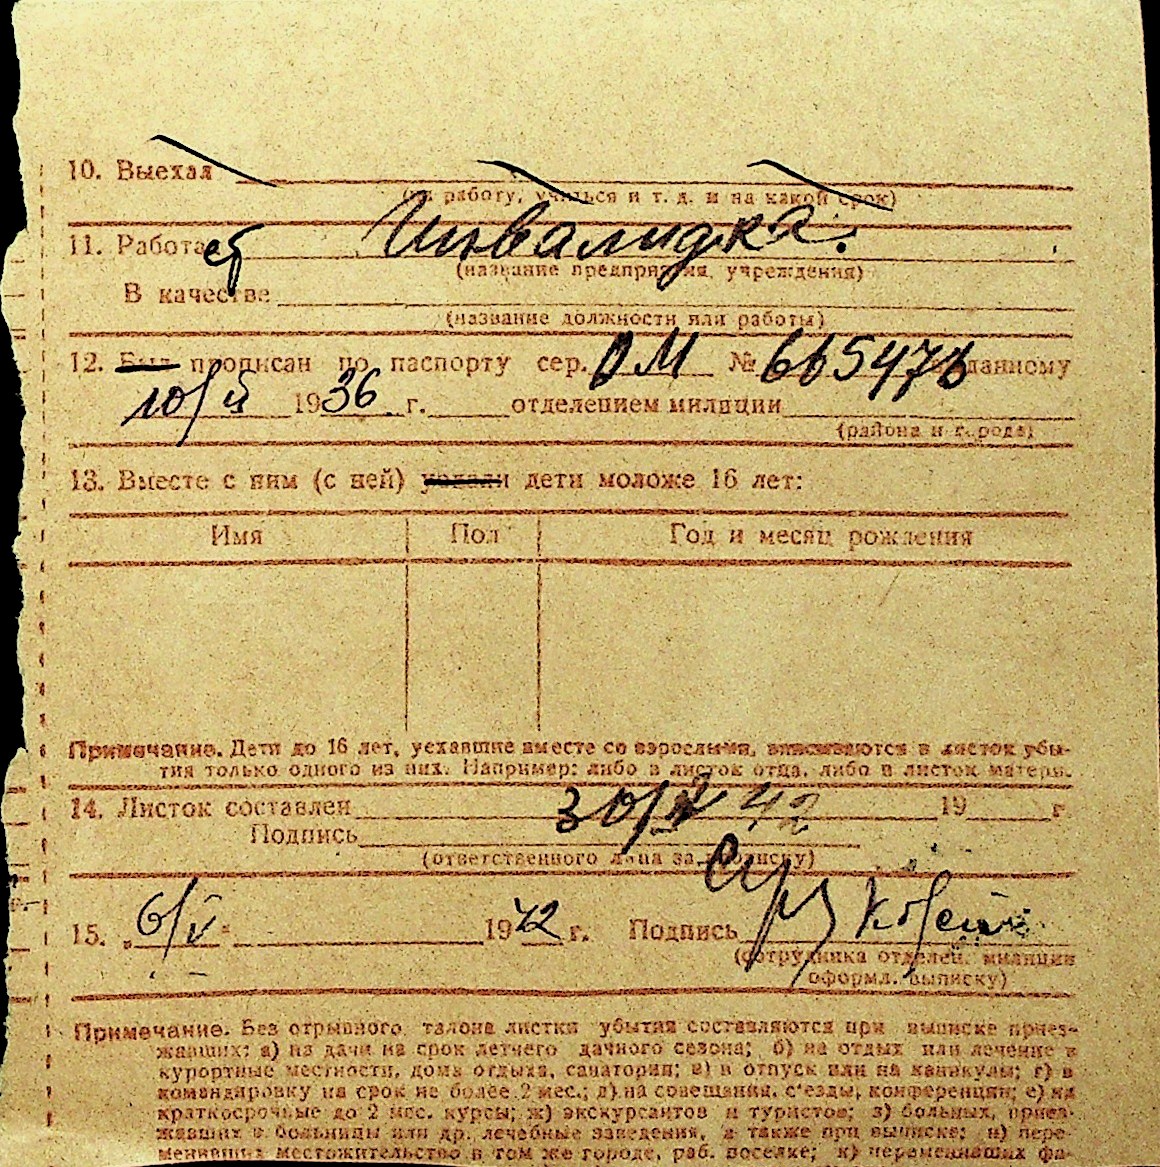 10. Выехал
(на работу, учиться и т. д. и на какой срок)
11. Работает Инвалидка.
(название предприятия, учреждения)
В качестве
(название должности или работы)
12. Был прописан по паспорту сер. ОМ № 665476 выданному
10/II 1936 г. отделением милиции
(района и города)
13. Вместе с ним (с ней) уехали дети моложе 16 лет:
Имя Пол Год и месяц рождения
Примечание. Дети до 16 лет, уехавшие вместе со взрослыми, вписываются в листок убы-
тия только одного из них. Например: либо в листок отца, либо в листок матери.
14. Листок составлен 30/ 42 19 г.
Подпись
(ответственного лица за прописку)
15. „6/V“ 1942 г. Подпись
(сотрудника отделен. милиции
оформл. выписку)
Примечание. Без отрывного талона листки убытия составляются при выписке приез-
жавших: а) на дачи на срок летнего дачного сезона; б) на отдых или лечение в
курортные местности, дома отдыха, санатории; в) в отпуск или на каникулы; г) в
командировку на срок не более 2 мес.; д) на совещания, с'езды, конференции; е) на
краткосрочные до 2 мес. курсы; ж) экскурсантов и туристов; з) больных, приез-
жавших в больницы или др. лечебные заведения, а также при выписке: и) пере-
менивших местожительство в том же городе, раб. поселке; к) переменивших фа-